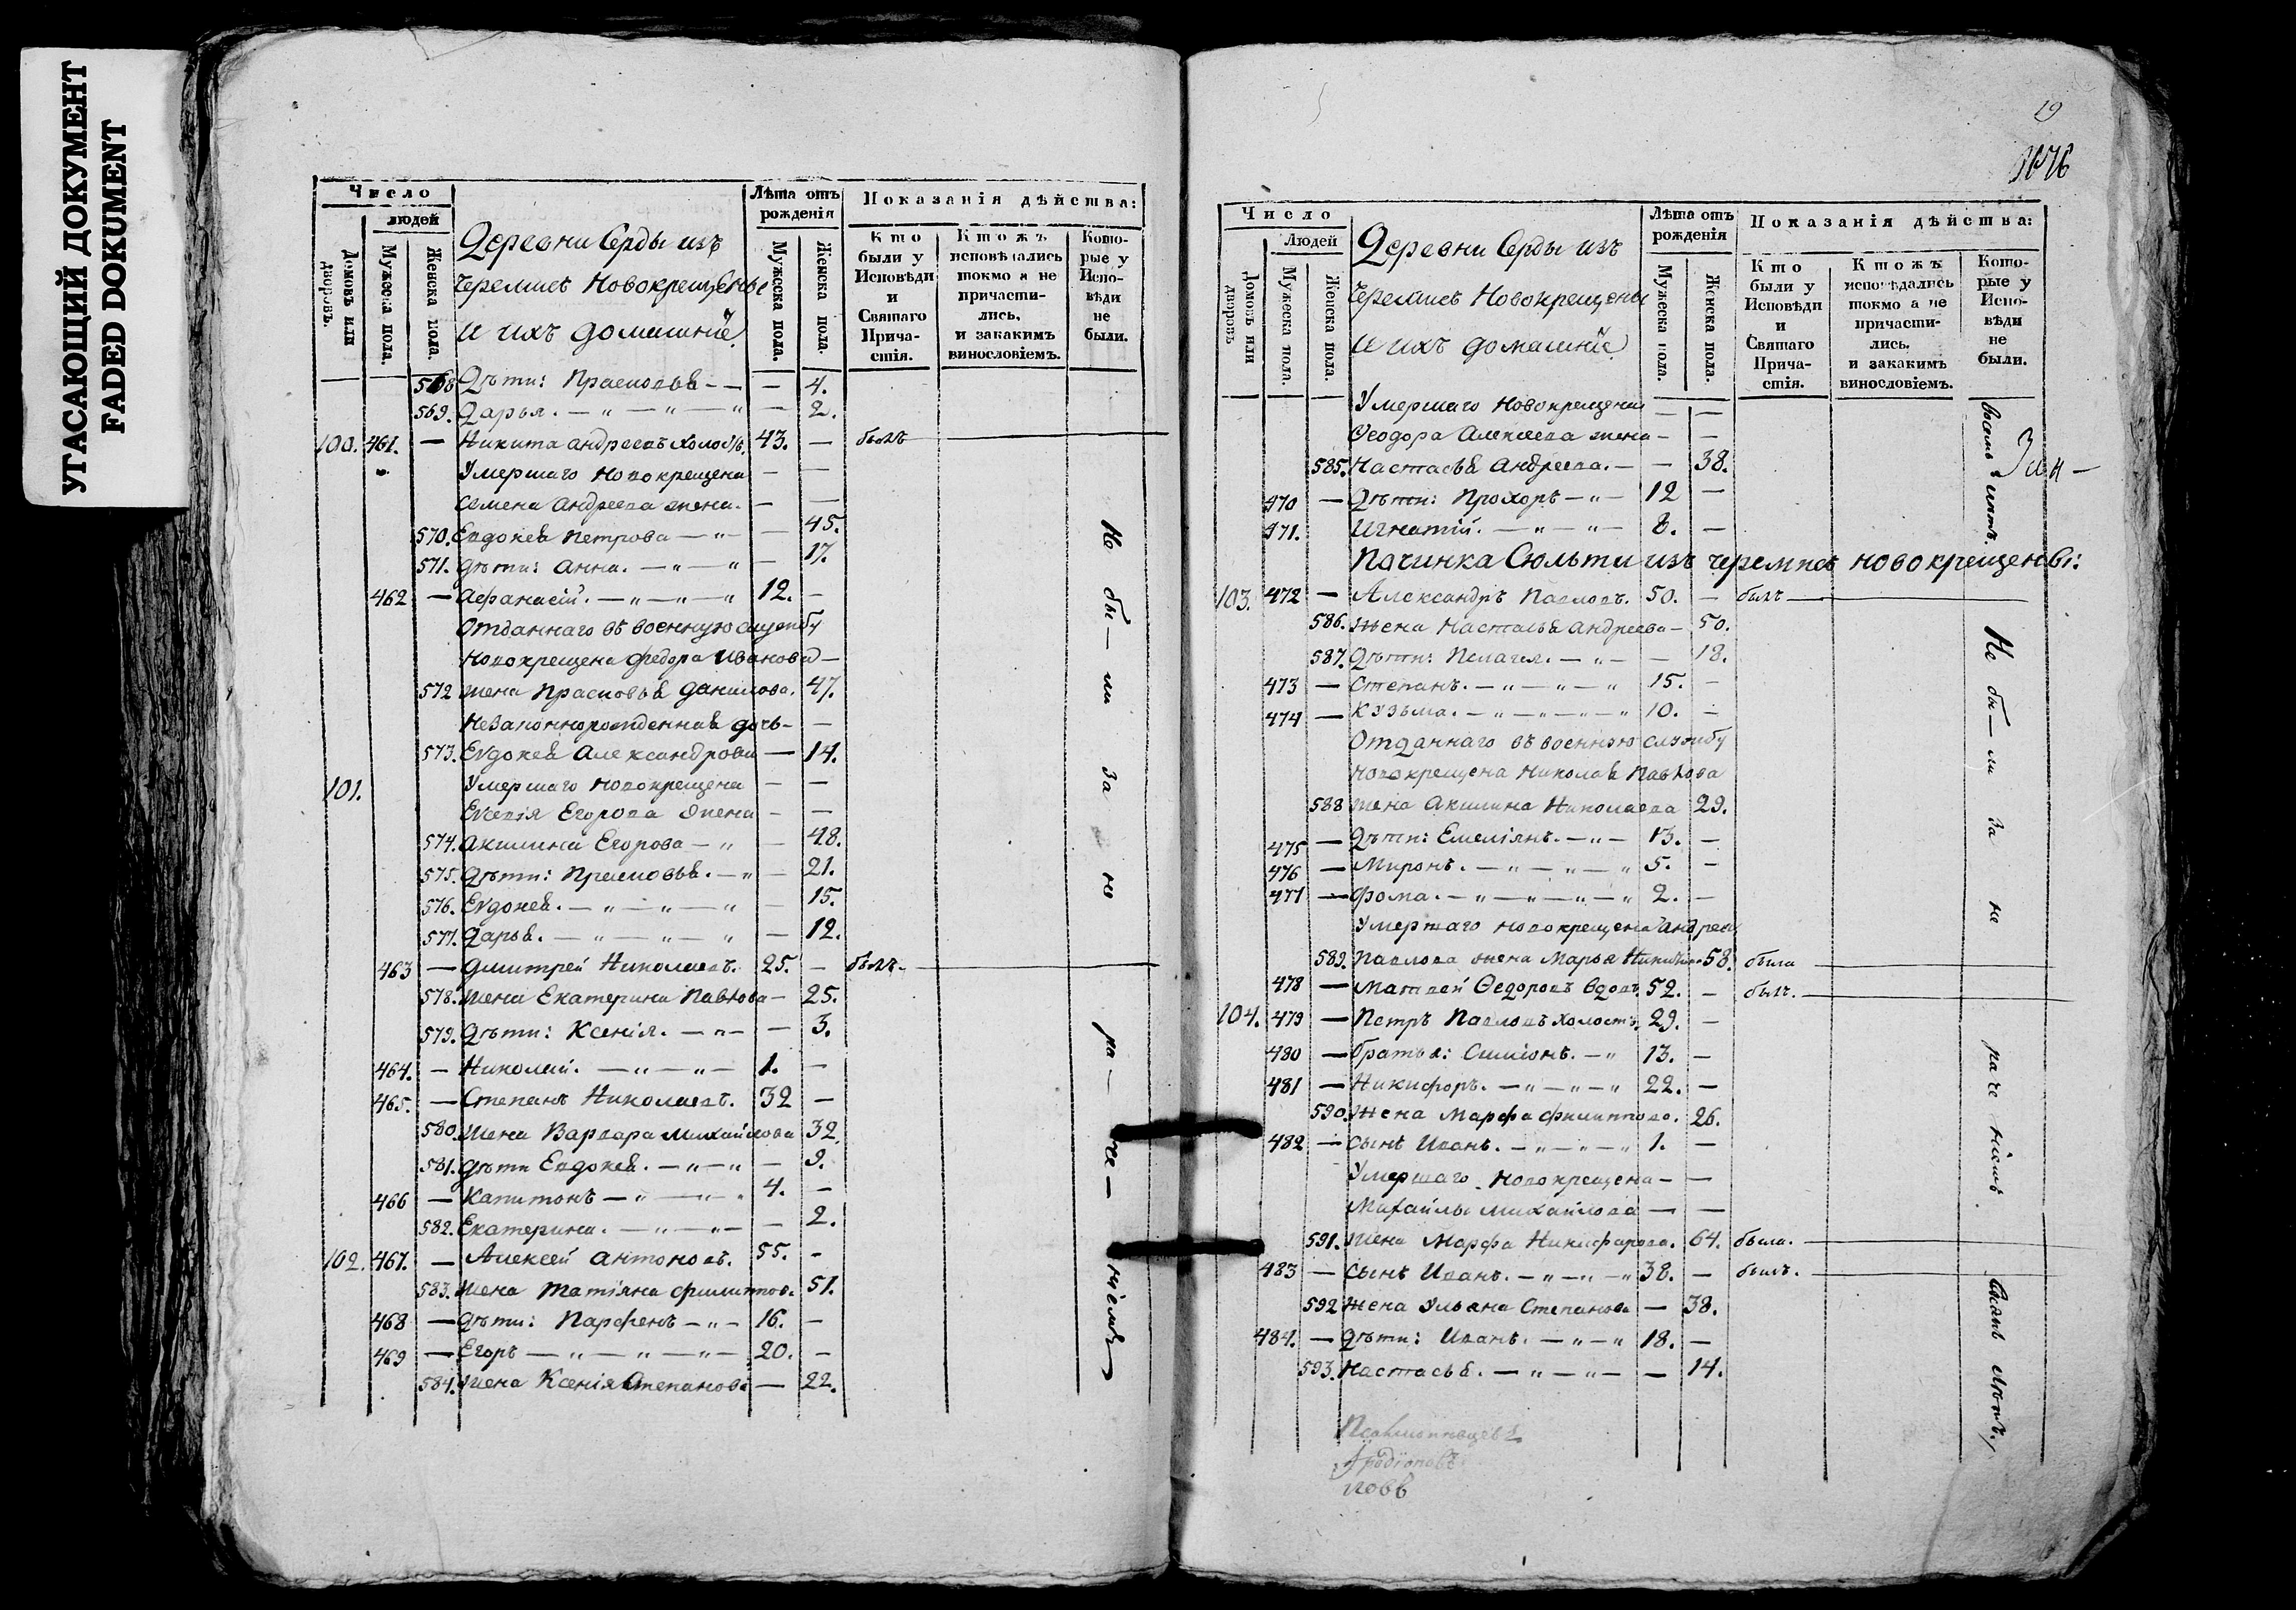 УТАСАЮЩИЙ ДОКУМЕНТ
FADED DOKUMENT
Число
людей
Домовъ или дворовъ.
Мужеска пола.
Женска пола.
Деревни Серды изъ
Черемисъ Новокрещены
и ихъ домашніе
Лѣта отъ рожденія
Мужеска пола.
Женска пола.
Показанія дѣйства:
Кто были у Исповѣди и Святаго Причастія.
Ктожъ исповѣдались токмо а не причастились, и закакимъ винословіемъ.
Которые у Исповѣди не были.
568 Дѣти: Прасковья — — — 4.
569. Дарья. — „ — „ — „ — 2.
100. 461. — Никита Андреевъ холос. 43. — былъ
Умершаго Новокрещена — —
Семена Андреева жена. — —
570. Евдокея Петрова — „ — — 45.
571. Дѣти: Анна. — „ — „ — 17.
462 — Афанасій. — „ — „ — „ 12. —
Отданнаго въ военную службу
Новокрещена Федора Иванова —
572 жена Прасковья Данилова. 47.
Незаконнорожденная дочь — —
573. Евдокея Александрова — 14.
101. Умершаго новокрещена — —
Егорова жена — —
574. Акилина Егорова — „ — 48.
575. Дѣти: Прасковья. — „ — 21.
576. Евдокея. — „ — „ — „ — 15.
577. Дарья. — „ — „ — „ — 12.
463 — Дмитрей Николаевъ. 25. — былъ.
578. жена Екатерина Павлова — 25.
579. Дѣти: Ксенія. — „ — — 3.
464. — Николай. — „ — „ — 1. —
465. — Степанъ Николаевъ. 32 —
580. жена Варвара Михайлова 32.
581. дѣти Евдокея. — „ — „ — 9.
466 — Капитонъ — „ — „ „ 4. —
582. Екатерина. — „ — „ — — 2.
102. 467. — Алексей Антоновъ. 55. —
583. жена Татіяна Филиппов. 51.
468 — Дѣти: Парфенъ — „ — 16. —
469 — Егоръ — „ — „ — „ — 20. —
584. жена Ксенія Степанова — 22.
Не бы — ли за не ра — че — ніемъ
19
Число
Людей
Домовъ или дворовъ
Мужеска пола.
Женска пола.
Деревни Серды изъ
Черемисъ Новокрещены
и ихъ домашніе
Лѣта отъ рожденія
Мужеска пола.
Женска пола.
Показанія дѣйства:
Кто были у Исповѣди и Святаго Причастія.
Ктожъ исповѣдались токмо а не причастились. и закакимъ винословіемъ.
Которые у Исповѣди не были.
Умершаго Новокрещена — —
Ѳеодора Алексеева жена — —
585. Настасья Андреева. — — 38.
470 — Дѣти: Прохоръ — „ — 12 —
471. Игнатій. — „ — „ — 8. —
Починка Сюльти изъ черемисъ новокрещены:
103. 472 — Александръ Павловъ. 50. — былъ
586. Жена Настасья Андреева — 50.
587. Дѣти: Пелагея. — „ — — 18.
473 — Степанъ. — „ — „ — „ 15. —
474 — Кузьма. — „ — „ — „ — „ 10. —
Отданнаго въ военную службу
новокрещена Николая Павлова
588 жена Акилина Николаева 29.
475 — Дѣти: Емеліянъ. — „ — 13. —
476 — Миронъ. — „ — „ — „ 5. —
477 — Фома. — „ — „ — „ — „ 2. —
Умершаго новокрещена Андрея
589. Павлова жена Марья 58. была
478 — Матвей Ѳедоровъ вдовъ. 52. — былъ.
104. 479 — Петръ Павловъ холостъ. 29. —
480 — братья: Симіонъ. — „ 13. —
481 — Никифоръ. — „ — „ — „ 22. —
590. Жена Марфа Филиппова. 26.
482 — сынъ Иванъ. — „ — „ — „ 1. —
Умершаго новокрещена — —
Михайлы Михайлова — —
591. жена Марфа Никифорова. 64. была.
483 — сынъ Иванъ. — „ — „ — „ 38. — былъ.
592 жена Ульяна Степанова — 38.
484. — Дѣти: Иванъ. — „ — „ 18. —
593. Настасья. — „ — „ — — 14.
Не бы — ли за не ра че ніемъ